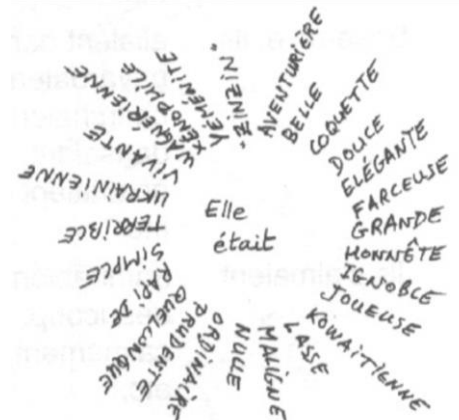 Elle
était
AVENTURIÈRE
BELLE
COQUETTE
DOUCE
ELÉGANTE
FARCEUSE
GRANDE
HONNÊTE
IGNOBLE
JOUEUSE
KOWAITIENNE
LASSE
MALIGNE
NULLE
ORDINAIRE
PRUDENTE
QUELCONQUE
RAPIDE
SIMPLE
TERRIBLE
UKRAINIENNE
VIVANTE
WAGNÉRIENNE
XÉNOPHILE
YÉMÉNITE
"ZINZIN"